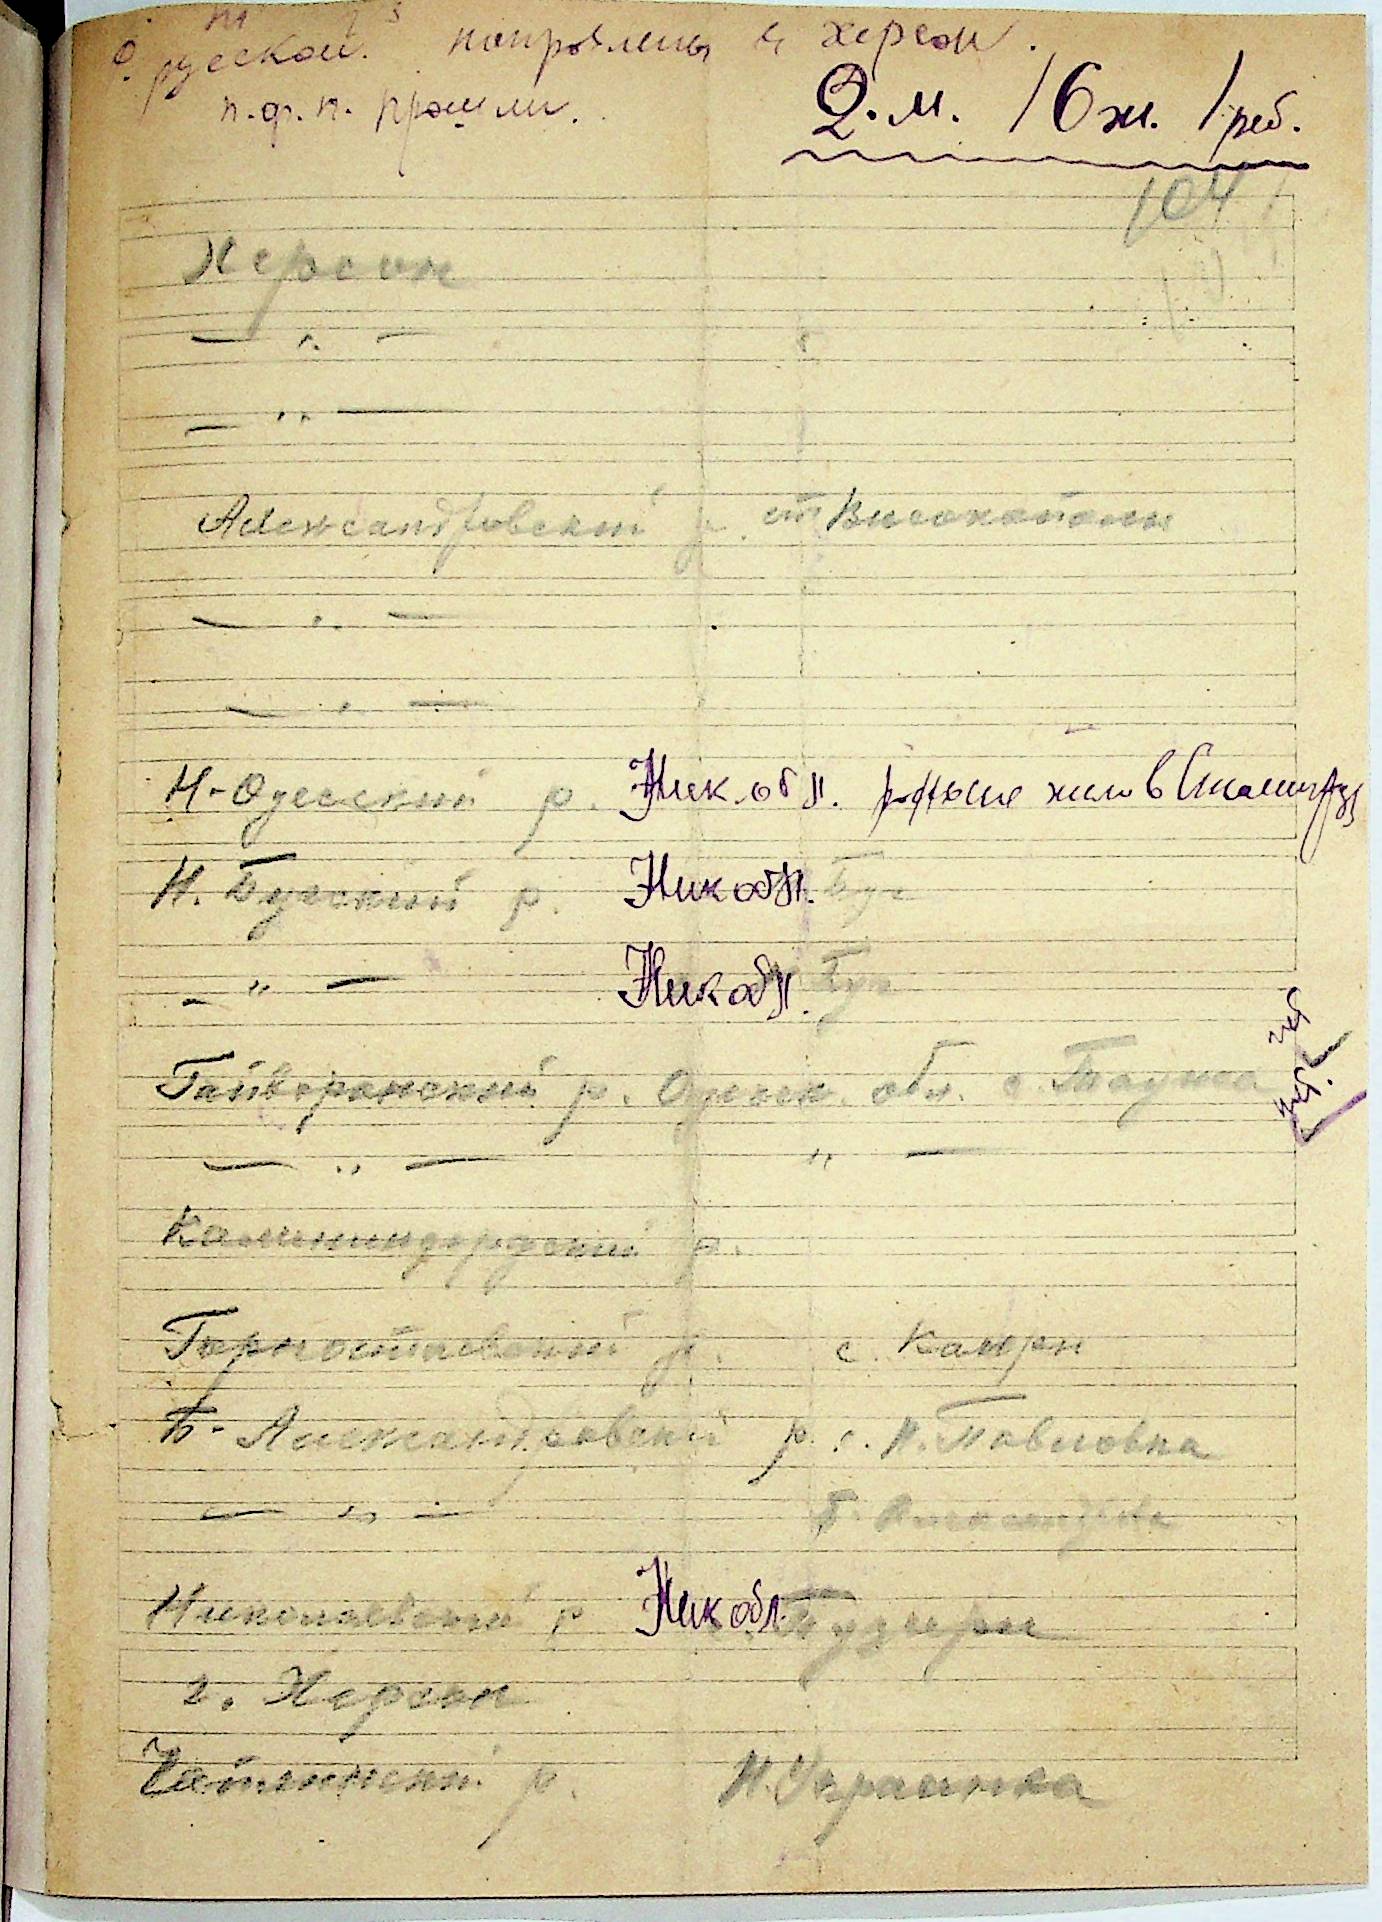 русской. направлены в херсон.
п.ф.п. прошли.
2.м. 16ж. 1 реб.
104
Херсон
— " —
— " —
Александровский р. ст Высокополье
— " —
— " —
Н-Одесский р. Ник.обл. родные жили в
Н. Бугский р. Никобл. Буг
— " — Никобл. Буг
Гайворонский р. Одесск. обл. с.
— " — " —
Калининдорфский р.
Горностаевский р. с. Каиры
Б-Александровский р. с. Н. Павловка
— " — Б. Александровка
Николаевский р Никобл.
г. Херсон
Чаплинский р. Н. Украинка